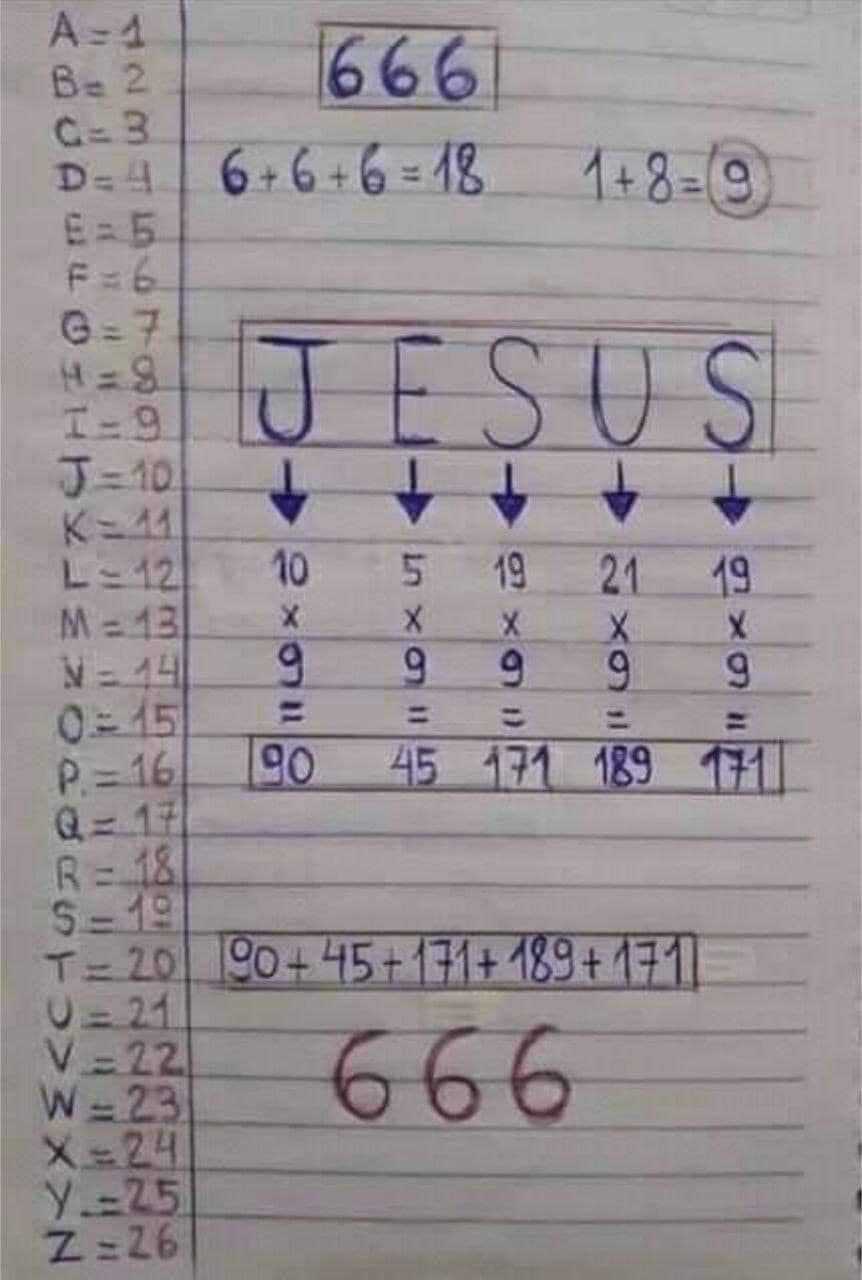 A = 1
B = 2
C = 3
D = 4
E = 5
F = 6
G = 7
H = 8
I = 9
J = 10
K = 11
L = 12
M = 13
N = 14
O = 15
P. = 16
Q = 17
R = 18
S = 19
T = 20
U = 21
V = 22
W = 23
X = 24
Y. = 25
Z = 26
666
6 + 6 + 6 = 18 1 + 8 = 9
JESUS
10 5 19 21 19
x x x x x
9 9 9 9 9
= = = = =
90 45 171 189 171
90 + 45 + 171 + 189 + 171 =
=
666